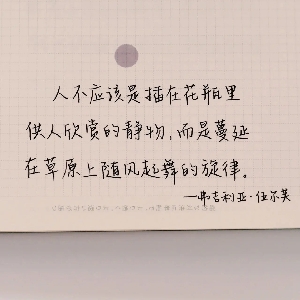 人不应该是插在花瓶里
供人欣赏的静物，而是蔓延
在草原上随风起舞的旋律。
——弗吉利亚·伍尔芙